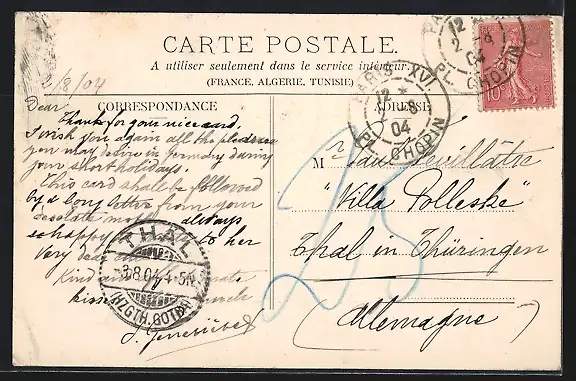 CARTE POSTALE.
A utiliser seulement dans le service intérieur.
(FRANCE, ALGERIE, TUNISIE)
CORRESPONDANCE
ADRESSE
1/8/04
Dear
Thanks for your nice card.
I wish you again all the pleasure
you may desire in Germany during
your short holidays.
This card shall be followed
by a long letter from your
desolate mother always
so happy to her
Very dear
Kind
kisses
M Paul Feuillâtre
"Villa Polleske"
Thal en Thüringen
(Allemagne)
25
PARIS XVI
12 * 2 8 04
PL. CHOPIN
PL. CHOPIN
04
10c
THAL
3.8.04.4-5N.
(HZGTH.GOTHA)